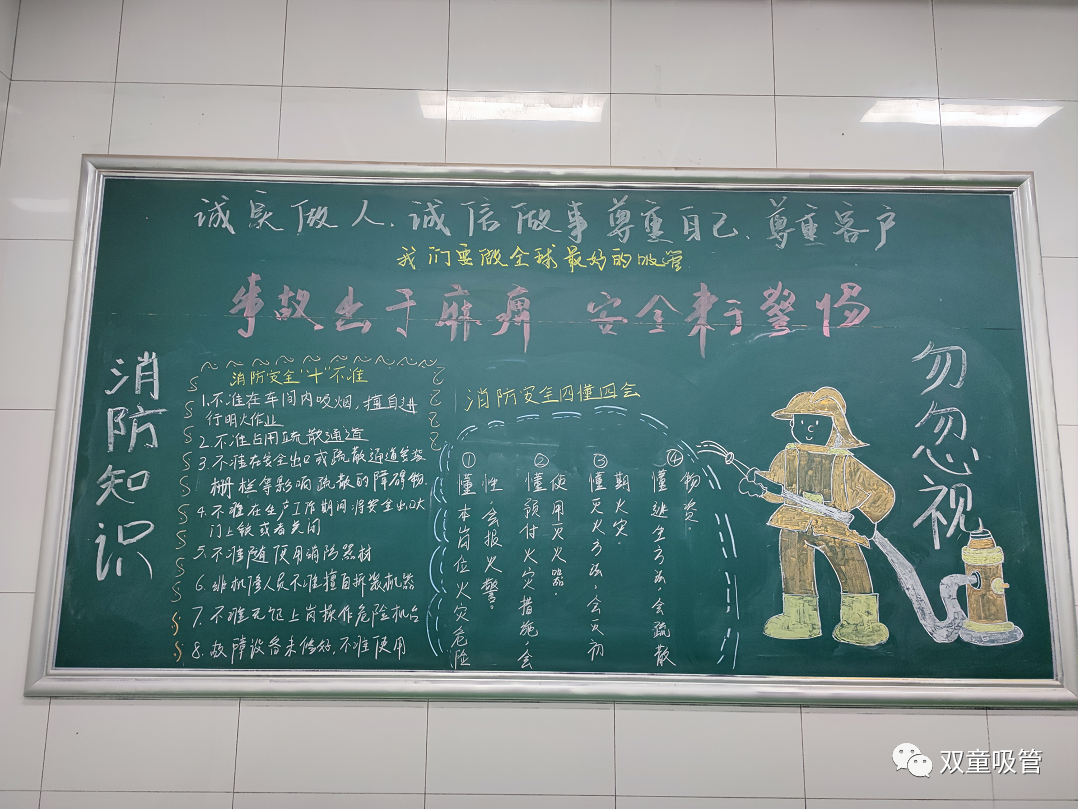 诚实做人、诚信做事尊重自己、尊重客户
我们要做全球最好的吸管
事故出于麻痹 安全来于警惕
消防知识
消防安全“十”不准
1.不准在车间内吸烟，擅自进
行明火作业
2.不准占用疏散通道
3.不准在安全出口或疏散通道安装
栅栏等影响疏散的障碍物.
4.不准在生产工作期间将安全出口
门上锁或者关闭
5.不准随便使用消防器材
6.非机修人员不准擅自拆装机器
7.不准无证上岗操作危险机台
8.故障设备未修好不准使用
消防安全四懂四会
①懂本岗位火灾危险
性 会报火警.
②懂预付火灾措施会
使用灭火器.
③懂灭火方法.会灭初
期火灾.
④懂逃生方法,会疏散
物资.
勿勿忽视
双童吸管